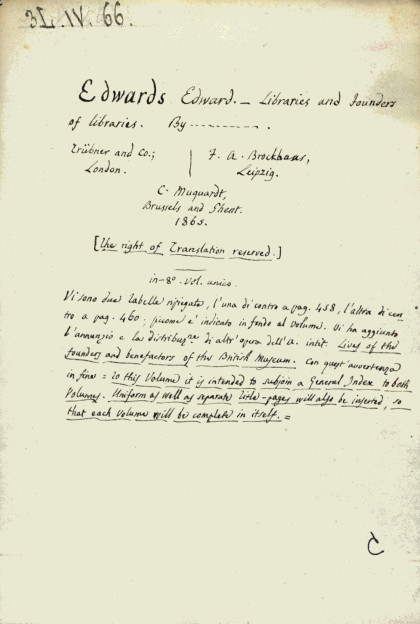 3L. IV. 66.
Edwards Edward. — Libraries and Founders
of libraries. By ---------- .
Trübner and Co;
London.
F. A. Brockhaus,
Leipzig.
C. Muquardt,
Brussels and Ghent.
1865.
[the right of Translation reserved.]
in-8º. vol. unico.
Vi sono due tabelle ripiegate, l'una di contro a pag. 458, l'altra di con
tro a pag. 460; siccome è indicato in fondo al volume. Vi ha aggiunto
l'annunzio e la distribuzne di altr'opera dell'A. intit. Lives of the
founders and benefactors of the British Museum. Con quest'avvertenza
in fine = to this Volume it is intended to subjoin a General Index to both
Volumes. Uniform as well as separate Title-pages will also be inserted, so
that each volume will be complete in itself. =